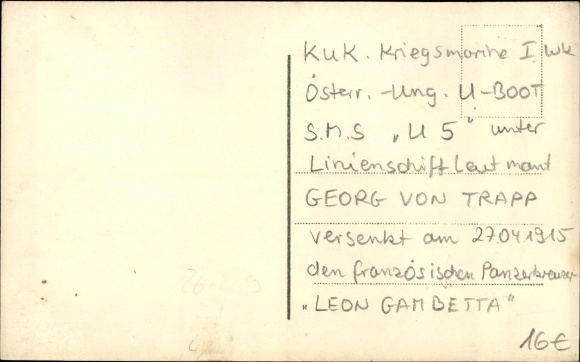 KuK. Kriegsmarine I. Wk.
Österr.-Ung. U-BOOT
S.M.S „U 5" unter
Linienschiffleutnant
GEORG VON TRAPP
versenkt am 27.04.1915
den französischen Panzerkreuzer
„LEON GAMBETTA"
16€